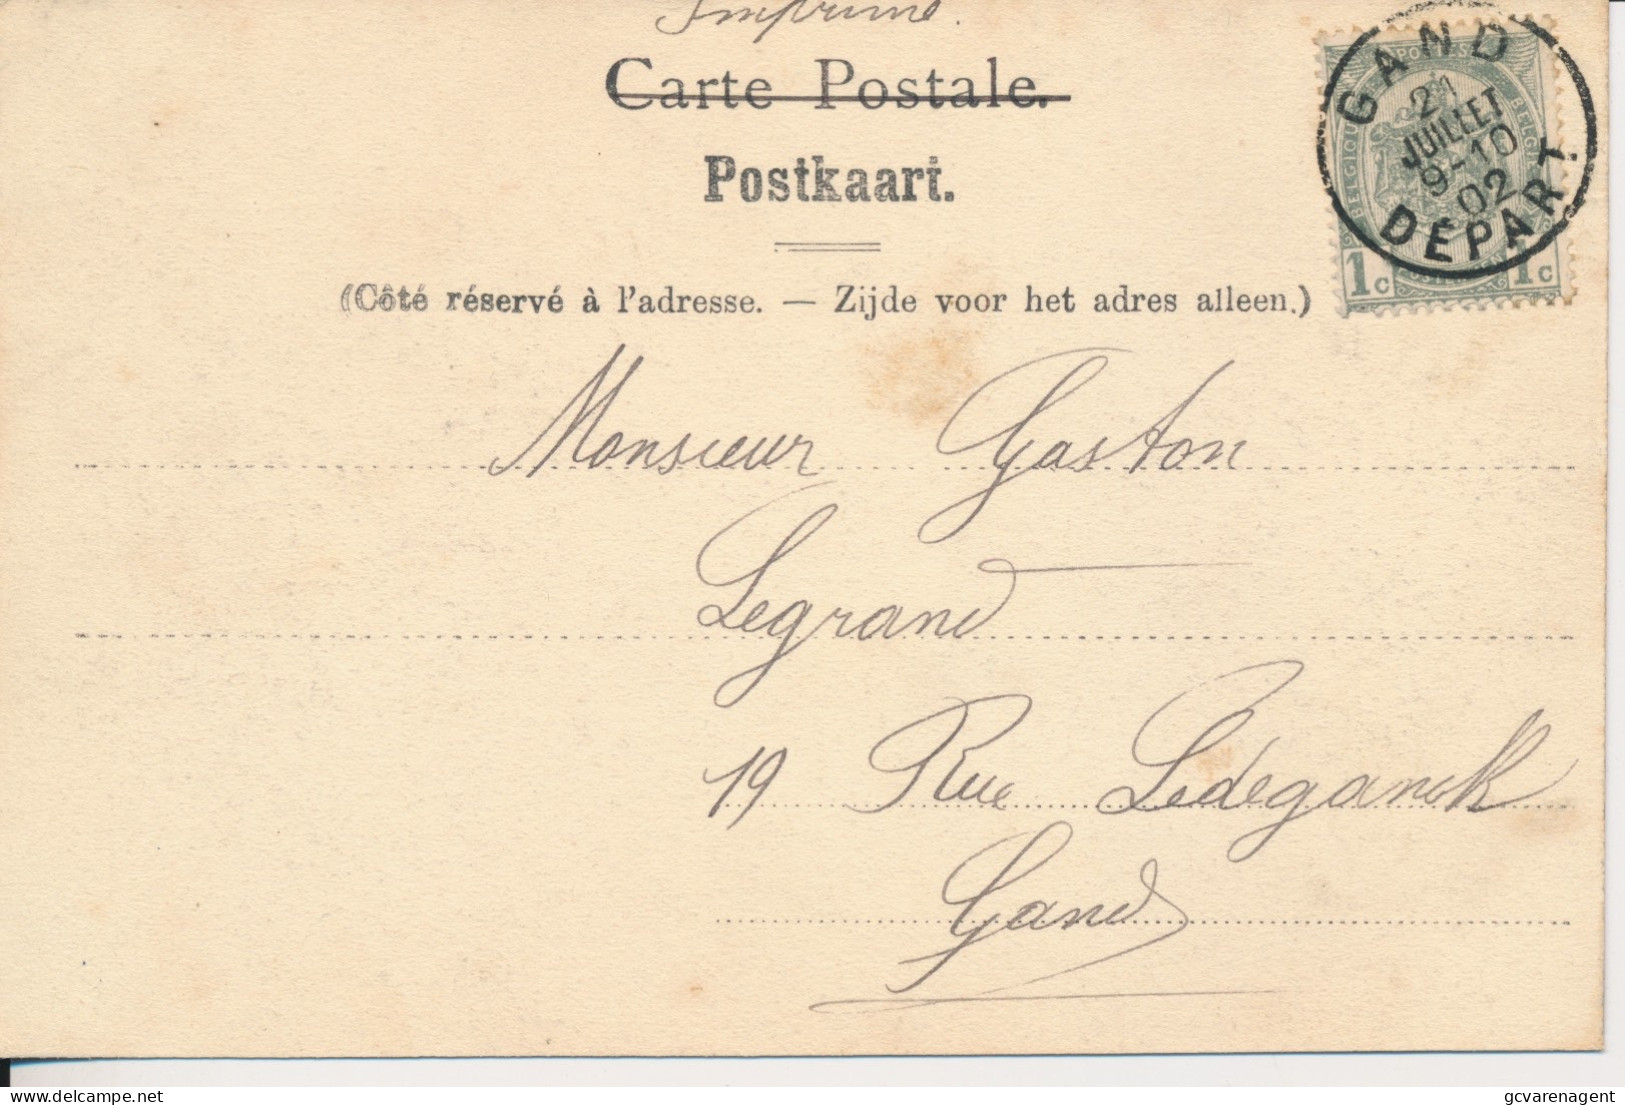 Imprimé.
Carte Postale.
Postkaart.
(Côté réservé à l'adresse. — Zijde voor het adres alleen.)
GAND
21
JUILLET
9-10
02
DÉPART
BELGIQUE
1c 1c
Monsieur Gaston
Legrand
19 Rue Ledeganck
Gand
gcvarenagent